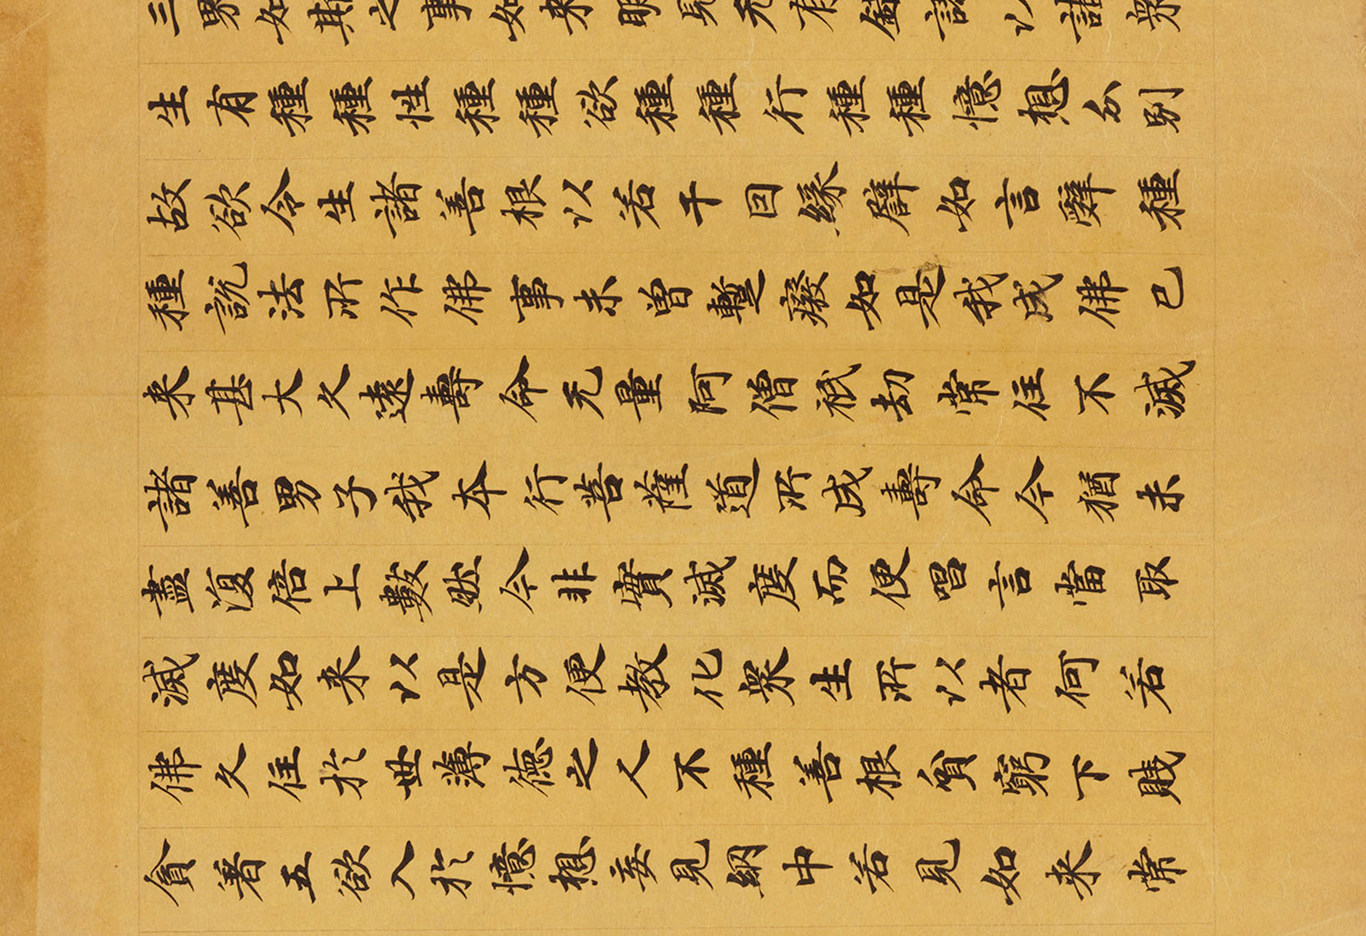 三界如斯之事如来明見无有錯謬以諸衆
生有種種性種種欲種種行種種憶想分別
故欲令生諸善根以若干因緣譬如言辭種
種說法所作佛事未曽暫癈如是我成佛已
来甚大久遠壽命无量阿僧祇劫常住不滅
諸善男子我本行菩薩道所成壽命今猶未
盡復倍上數然今非實滅度而便唱言當取
滅度如来以是方便教化衆生所以者何若
佛久住於世薄德之人不種善根貧窮下賤
貪著五欲入於憶想妄見網中若見如来常